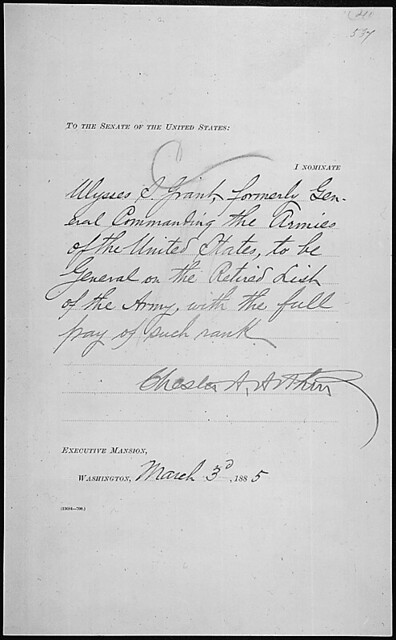 537
TO THE SENATE OF THE UNITED STATES:
I NOMINATE
Ulysses S. Grant, formerly Gen-
eral Commanding the Armies
of the United States, to be
General on the Retired List
of the Army, with the full
pay of such rank
Chester A. Arthur
EXECUTIVE MANSION,
WASHINGTON, March 3d, 1885